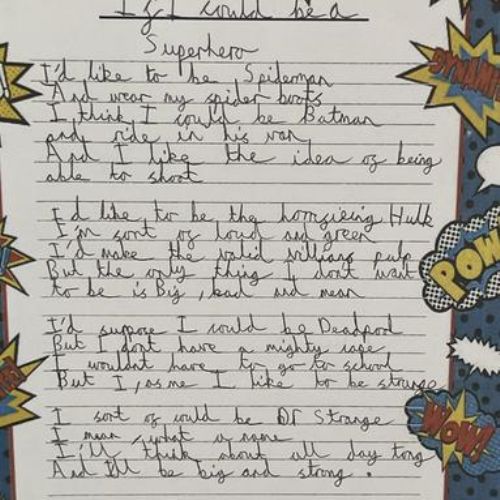 If I could be a
Superhero
I'd like to be Spiderman
And wear my spider boots
I think I could be Batman
and ride in his van
And I like the idea of being
able to shoot
I'd like to be the horrifieing Hulk
I'm sort of loud and green
I'd make the valid villians pulp
But the only thing I dont want
to be is Big, bad and mean
I'd suppose I could be Deadpool
But I dont have a mighty cape
I wouldnt have to go to school
But I, as me I like to be strange
I sort of could be Dr Strange
I mean, what a name
I'll think about all day long
And I'll be big and strong.
DYNAMI
POW
WOW!